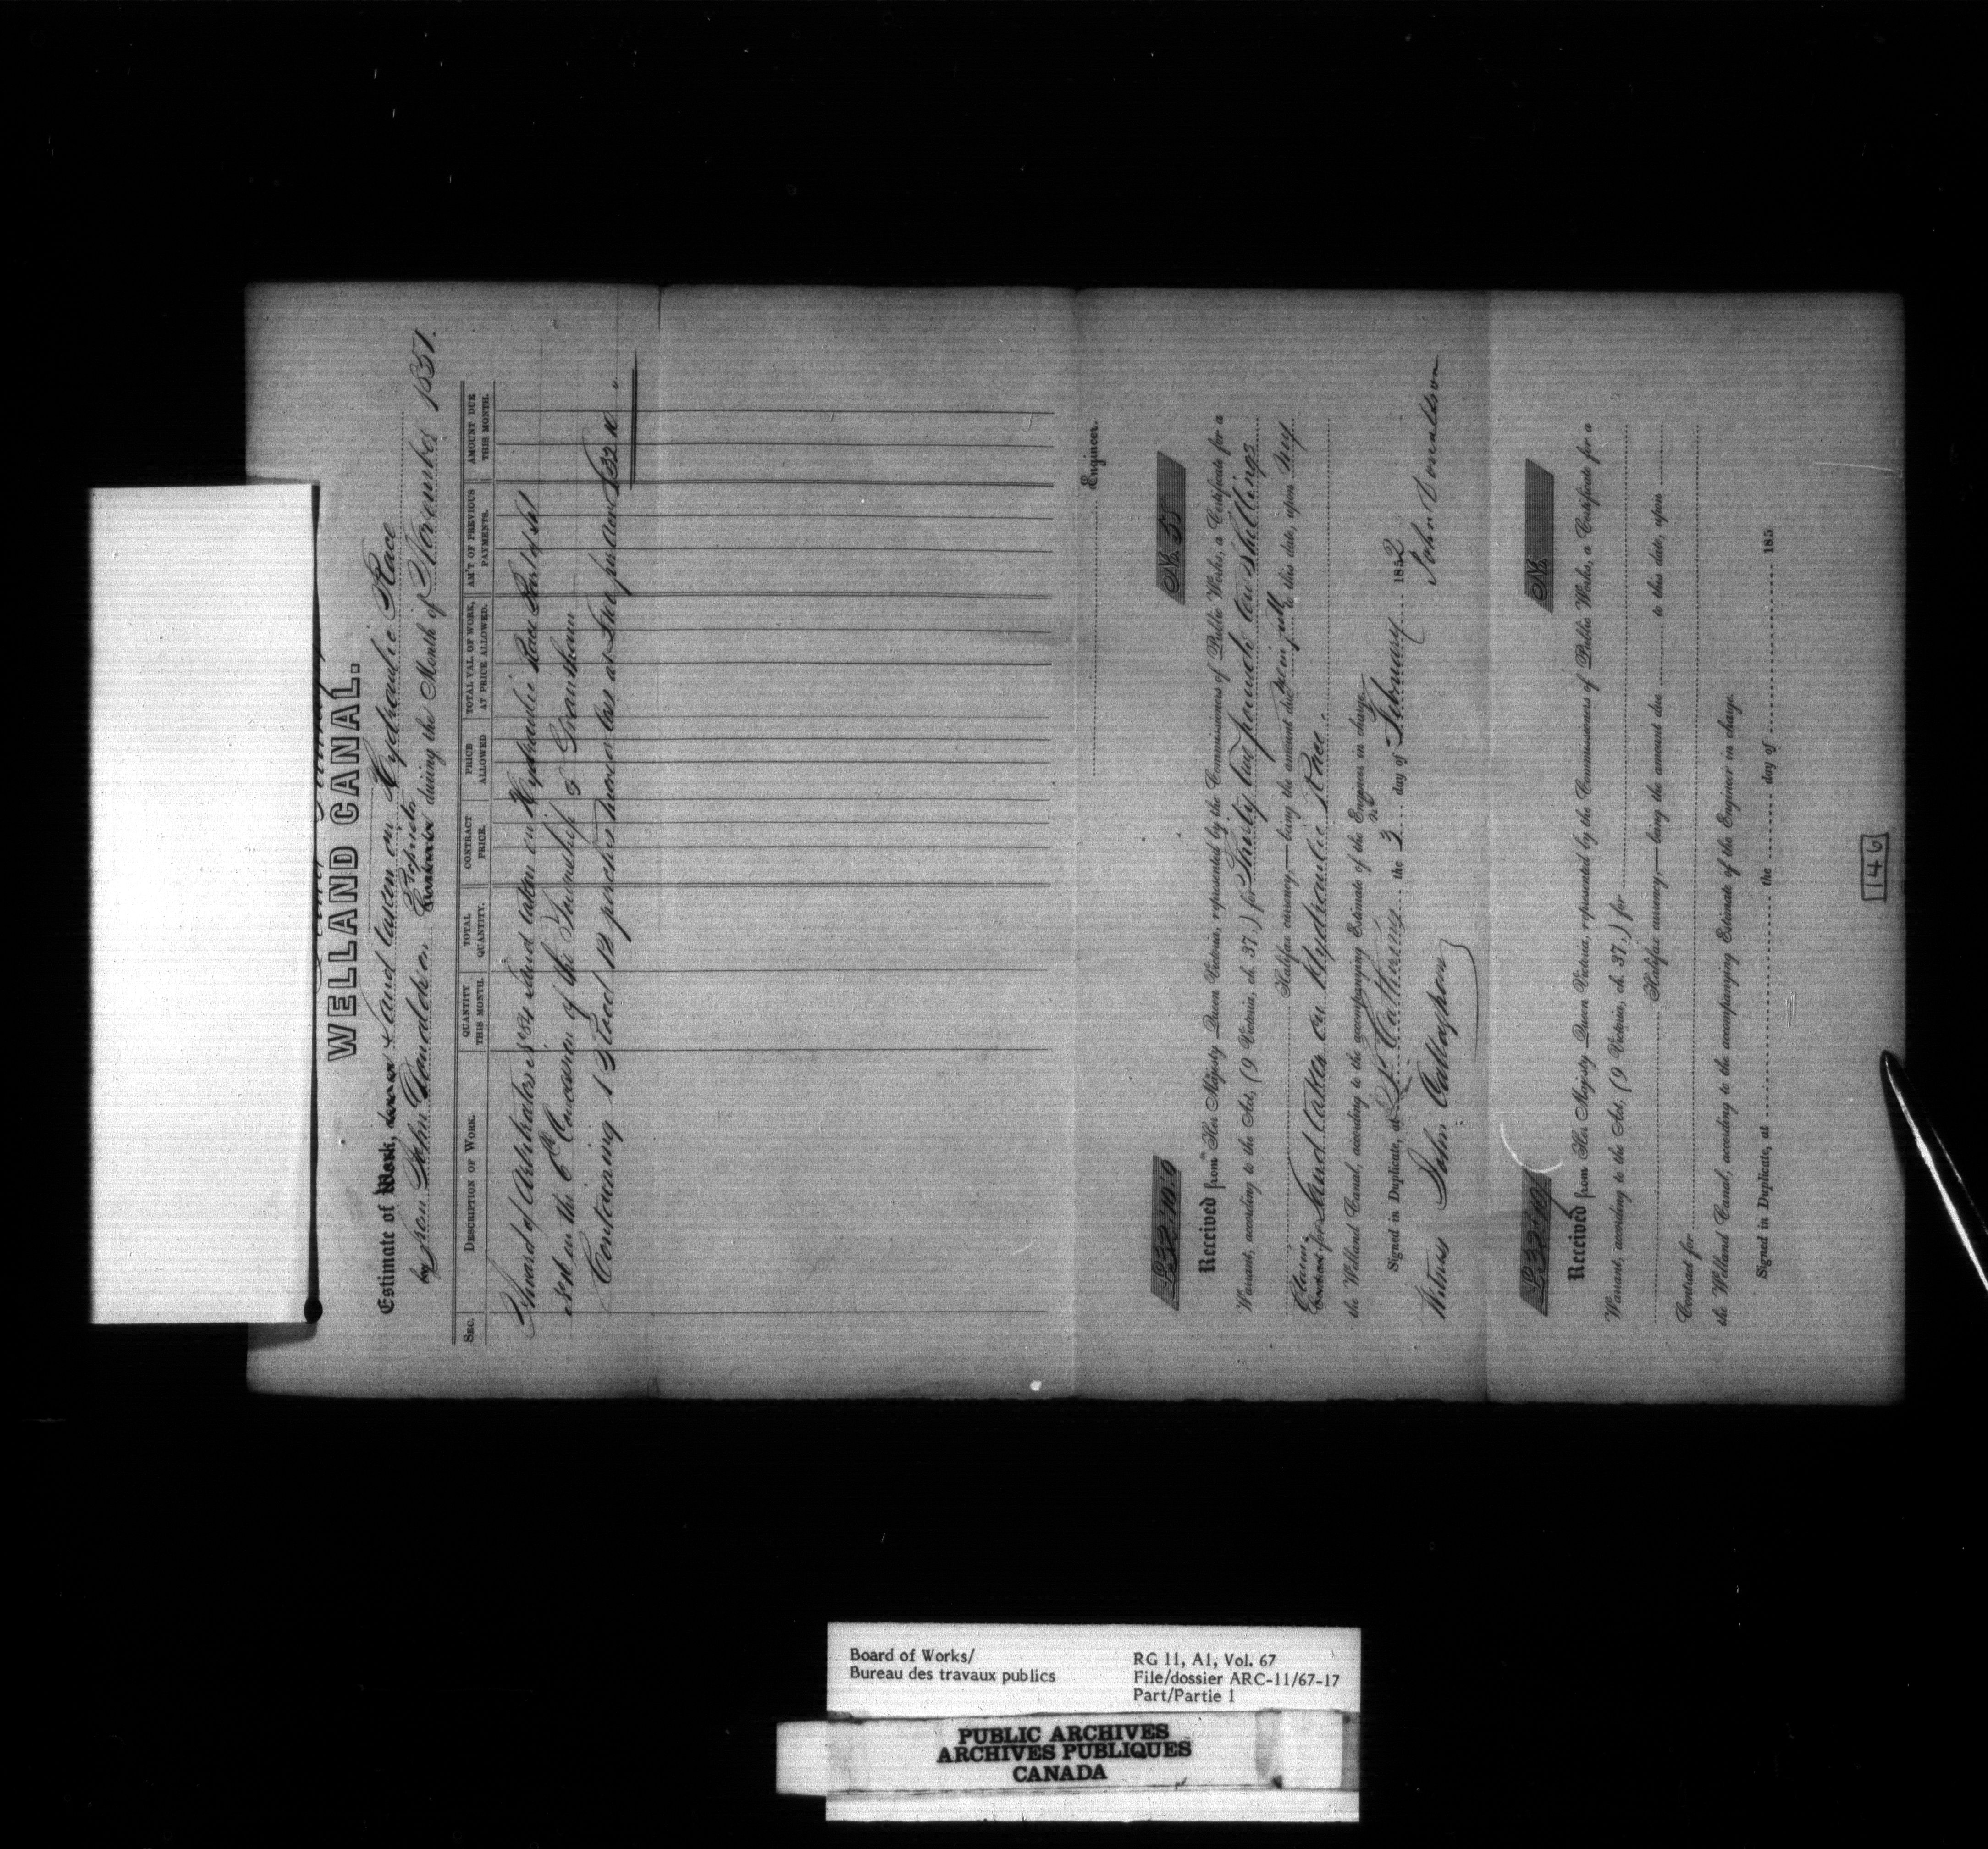 WELLAND CANAL.
Estimate of Work, Land taken on Hydraulic Race
by from John Donaldson Contractor Proprietor during the Month of November 1851.
SEC.
DESCRIPTION OF WORK.
QUANTITY THIS MONTH.
TOTAL QUANTITY.
CONTRACT PRICE.
PRICE ALLOWED
TOTAL VAL. OF WORK, AT PRICE ALLOWED.
AM'T OF PREVIOUS PAYMENTS.
AMOUNT DUE THIS MONTH.
Award of Arbitrators Land taken on Hydraulic Race Part of Lot
in the 6th Concession of the Township of Grantham
Containing 1 Rood 12 perches more or less at per Acre £32 10 "
Engineer.
£32:10:0
No. 58
Received from Her Majesty Queen Victoria, represented by the Commissioners of Public Works, a Certificate for a
Warrant, according to the Act, (9 Victoria, ch. 37.) for Thirty two pounds ten shillings
Halifax currency,—being the amount due me in full to this date, upon my
Claim Contract for Land taken on Hydraulic Race
the Welland Canal, according to the accompanying Estimate of the Engineer in charge.
Signed in Duplicate, at St Catharines the 3rd day of February 1852
Witness John Callaghan
John Donaldson
£32:10/
No.
Received from Her Majesty Queen Victoria, represented by the Commissioners of Public Works, a Certificate for a
Warrant, according to the Act, (9 Victoria, ch. 37.) for
Halifax currency,—being the amount due to this date, upon
Contract for
the Welland Canal, according to the accompanying Estimate of the Engineer in charge.
Signed in Duplicate, at the day of 185
146
Board of Works/
Bureau des travaux publics
RG 11, A1, Vol. 67
File/dossier ARC-11/67-17
Part/Partie 1
PUBLIC ARCHIVES
ARCHIVES PUBLIQUES
CANADA